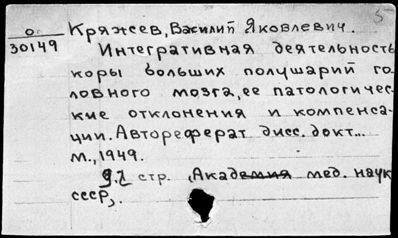 О
30149
Кряжев, Василий Яковлевич.
Интегративная деятельность
коры больших полушарий го-
ловного мозга, ее патологичес-
кие отклонения и компенса-
ции. Автореферат дисс. докт...
М., 1949.
стр. (Академия мед. наук
СССР).